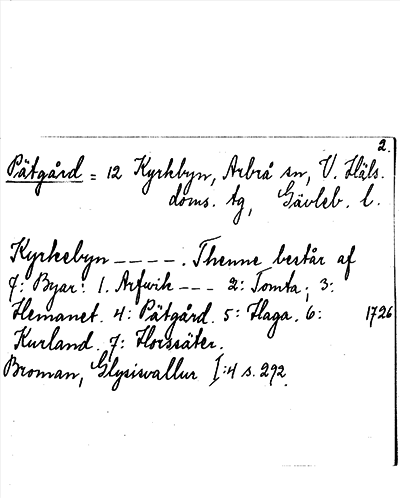 2.
Pätgård = 12 Kyrkbyn, Arbrå sn, V. Häls.
doms. tg, Gävleb. l.
Kyrkebyn ----. Thenne består af
7: Byar: 1. Arfwik --- 2: Tomta; 3:
Hemanet. 4: Pätgård. 5: Haga. 6: 1726
Kurland. 7: Horssäter.
Broman, Glysisvallur I:4 s. 292.